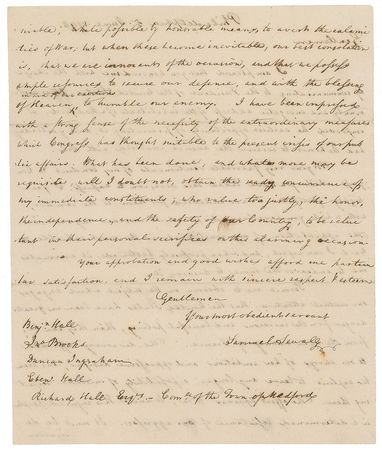 sirable, while possible by honorable means, to avert the calami
ties of War; but when these become inevitable, our best consolation
is, that we are innocent of the occasion, and that we possess
ample resources to secure our defence, and with the blessing
of Heaven to humble our enemy. I have been impressed
with a strong sense of the necessity of the extraordinary measures
which Congress has thought suitable to the present crisis of our pub
lic affairs. What has been done, and what more may be
requisite, will I doubt not, obtain the ready concurrence of
my immediate constituents; who value too justly, the honor,
the independence, and the safety of our Country, to be reluc
tant in their personal sacrifices on this alarming occasion
Your approbation and good wishes afford me particu
lar satisfaction, and I remain with sincere respect & esteem
Gentlemen
Your most obedient servant
Samuel Sewall
Benjn. Hall
Jno. Brooks
Duncan Ingraham
Ebenr. Hall
Richard Hall Esqrs. – Comee. of the Town of Medford